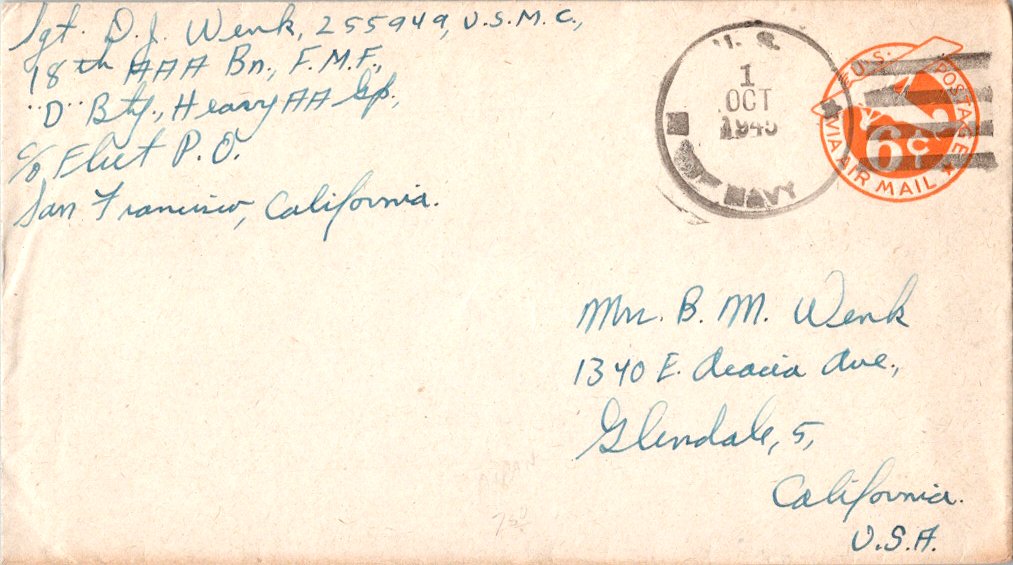 Sgt. D. J. Wenk, 255949, U.S.M.C.,
18th AAA Bn., F.M.F.,
"D" Bty., Heavy AA Gp.,
c/o Fleet P.O.
San Francisco, California.
U.S.
1
OCT
1945
NAVY
U.S. POSTAGE
6c
VIA AIR MAIL
Mrs. B. M. Wenk
1340 E. Acacia Ave.,
Glendale, 5,
California.
U.S.A.